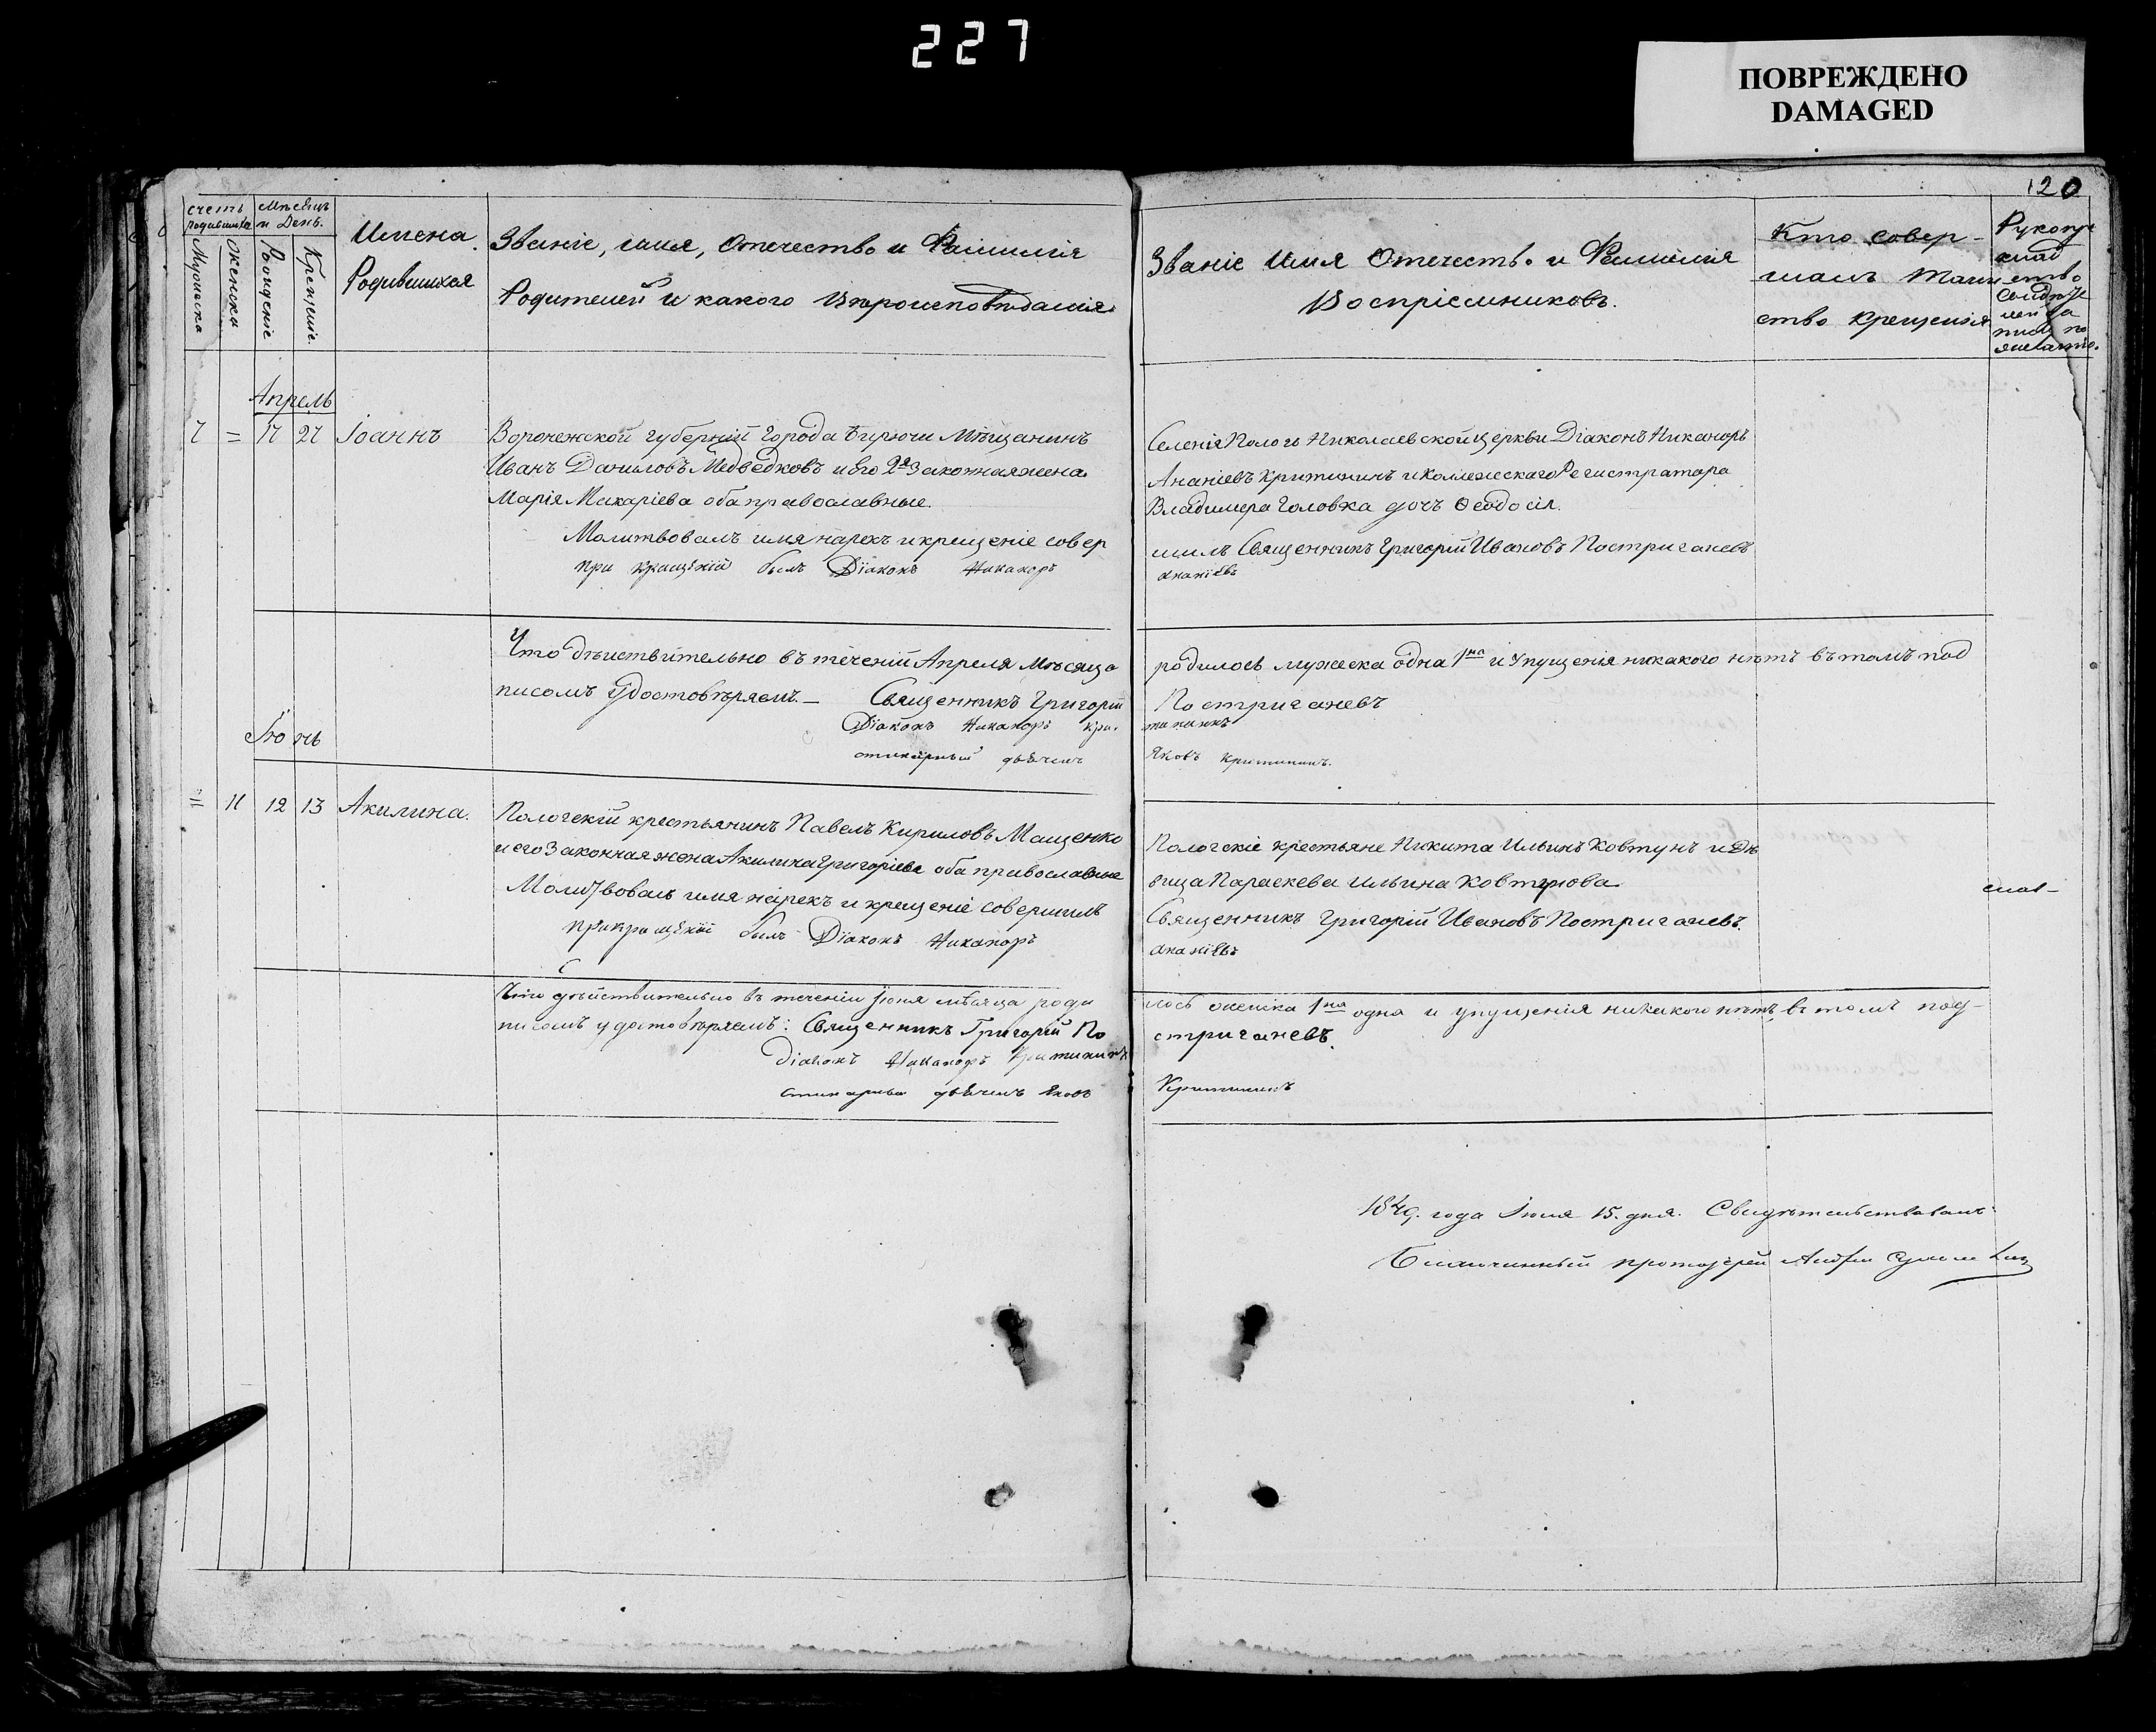 227
ПОВРЕЖДЕНО
DAMAGED
120
счетъ родившихся
Мужеска
Женска
Мѣсяцъ и День.
Рожденіе
Крещеніе.
Имена
Родившихся
Званіе, имя, Отечество и Фамилія
Родителей и какого Вѣроисповѣданія
Званіе Имя Отечество и Фамилія
Воспріемниковъ.
Кто совер-
шалъ Таин
ство крещенія
Рукопри
клад
ство
Свидѣте
лей за
писи по
желанію.
Апрель
7 = 17 27 Іоаннъ
Воронежской губерніи Города Бирючи Мѣщанинъ
Иванъ Даниловъ Медведковъ и его 2я Законная жена
Марія Макаріева оба православные.
Молитвовалъ имя нарекъ и крещеніе совер
при кращѣніи былъ Діаконъ Никаноръ
Селенія Пологъ Николаевской церкви Діаконъ Никаноръ
Ананіевъ Критининъ и Коллежскаго Регистратора
Владимера Головка дочь Ѳеодосія.
шилъ Священникъ Григорій Ивановъ Постригачевъ
Ананіевъ
Что дѣиствительно въ теченіи Апреля Мѣсяца
писомъ Удостовѣряемъ.— Священникъ Григорій
Діаконъ Никаноръ Кри-
стихарный дьячекъ
родилось мужеска одна 1на и Упущенія никакого нѣтъ въ томъ под
Постригачевъ
тининъ
Яковъ Критининъ.
Іюнь
= 11 12 13 Акилина.
Пологскій крестьянинъ Павелъ Кириловъ Мащенко
и его Законная жена Акилина Григоріева оба православные
Молитвовалъ имя нарекъ и крещеніе совершилъ
при кращѣніи былъ Діаконъ Никаноръ
Пологскіе крестьяне Никита Ильинъ Ковтунъ и Дѣ
вица Параскева Ильина Ковтунова
Священникъ Григорій Ивановъ Постригачевъ.
Ананіевъ
Что дѣйствительно въ теченіи Іюня мѣсяца роди
писомъ удостовѣряемъ: Священникъ Григорій По
Діаконъ Никаноръ Критининъ
стихарный дьячекъ Яковъ
лось женска 1на одна и упущенія никакого нѣтъ, въ томъ под-
стригачевъ.
Критининъ
1849. года Іюля 15. дня. Свидѣтельствовалъ
Благочинный протоіерей